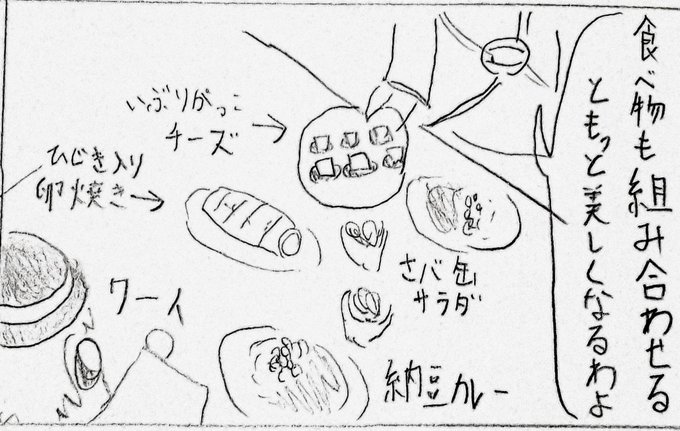 食べ物も組み合わせる
ともっと美しくなるわよ
いぶりがっこ
チーズ
ひじき入り
卵焼き
さバ缶
サラダ
ワーイ
納豆カレー